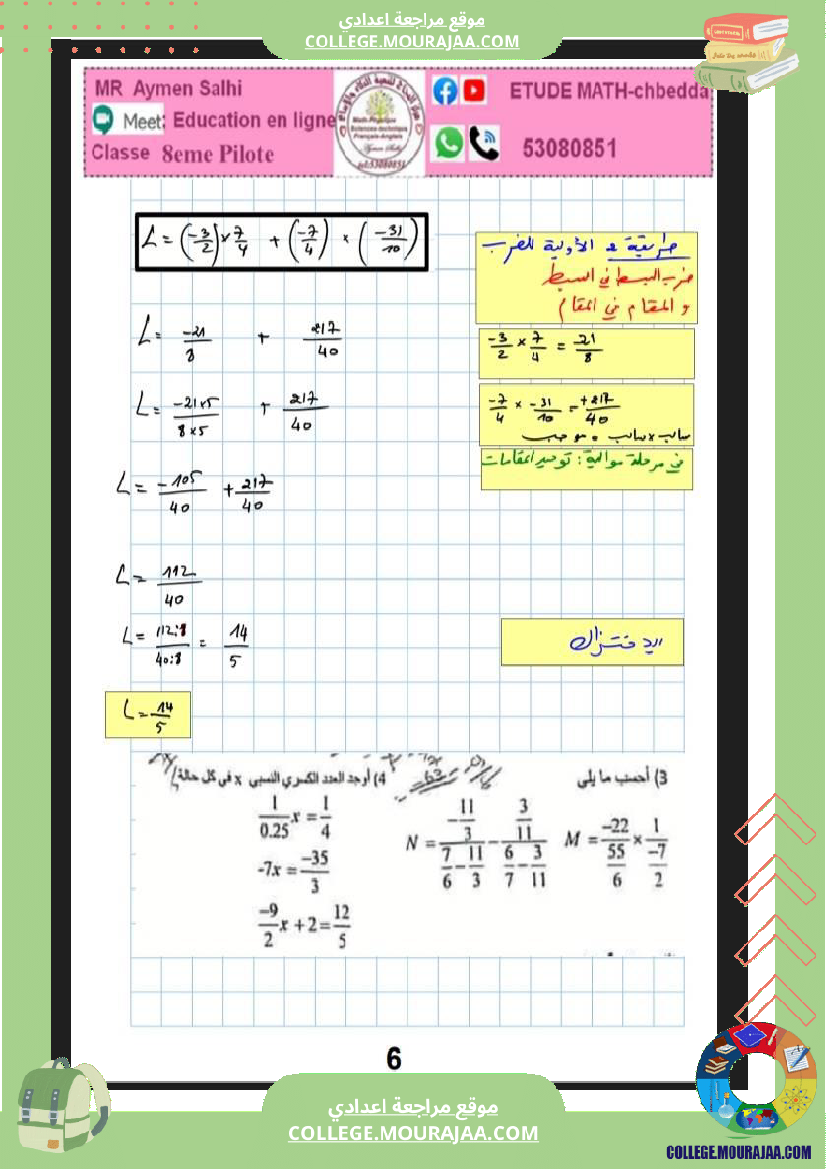 موقع مراجعة اعدادي
COLLEGE.MOURAJAA.COM
MR Aymen Salhi
Meet: Education en ligne
Classe 8eme Pilote
ETUDE MATH-chbedda
53080851
L = (-3/2) × 7/4 + (-7/4) × (-31/10)
طريقة 2 الأولية للضرب
ضرب البسط في البسط
و المقام في المقام
L = -21/8 + 217/40
-3/2 × 7/4 = -21/8
L = -21×5/8×5 + 217/40
-7/4 × -31/10 = +217/40
سالب × سالب = موجب
في مرحلة موالية : توحيد المقامات
L = -105/40 + 217/40
L = 112/40
L = 112:8/40:8 = 14/5
الاختزال
L = 14/5
3) أحسب ما يلي
M = (-22/(55/6)) × (1/(-7/2))
N = (-11/3)/(7/6 - 11/3) - (3/11)/(6/7 - 3/11)
4) أوجد العدد الكسري النسبي x في كل حالة
1/0.25 x = 1/4
-7x = -35/3
-9/2 x + 2 = 12/5
6
موقع مراجعة اعدادي
COLLEGE.MOURAJAA.COM
COLLEGE.MOURAJAA.COM